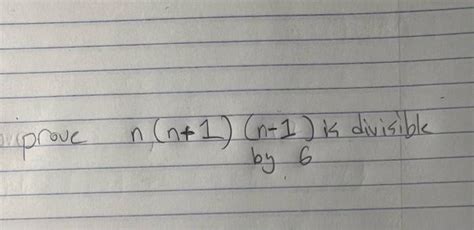 prove n(n+1)(n-1) is divisible
by 6